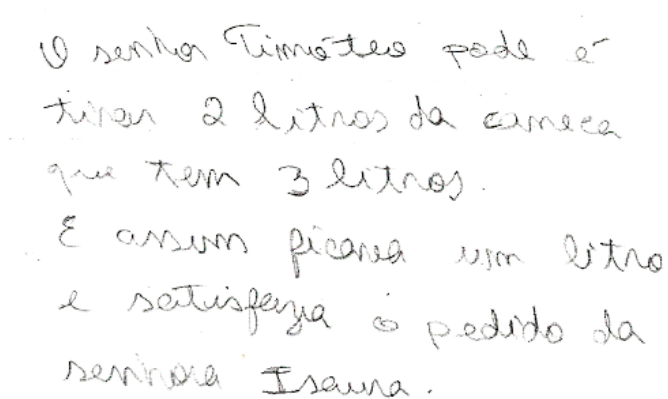 O senhor Timóteo pode é
tirar 2 litros da caneca
que tem 3 litros.
E assim ficaria um litro
e satisfazia o pedido da
senhora Isaura.